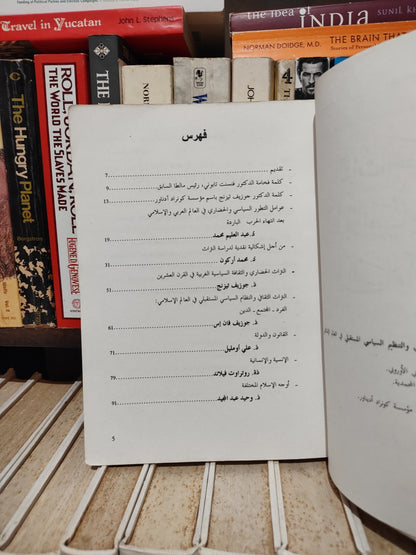 Funding of Political Parties and Election Campaigns
Travel in Yucatan
John L. Stephens
the idea of INDIA
SUNIL
NORMAN DOIDGE, M.D.
THE BRAIN THAT
Stories of Personal
The Hungry Planet
Borgstrom
ROLL, JORDAN, ROLL
THE WORLD THE SLAVES MADE
EUGENE D. GENOVESE
THE
NOR
4
فهرس
- تقديم 7
- كلمة فخامة الدكتور فنسنت تابوني، رئيس مالطا السابق 9
- كلمة الدكتور جوزيف تيزنج باسم مؤسسة كونراد أديناور 13
- عوامل التطور السياسي والحضاري في العالم العربي والإسلامي
بعد انتهاء الحرب الباردة
د.عبد العليم محمد 19
- من أجل إشكالية نقدية لدراسة التراث
د. محمد أركون 31
- التراث الحضاري والثقافة السياسية الغربية في القرن العشرين
د. جوزيف تيزنج 51
- التراث الثقافي والنظام السياسي المستقبلي في العالم الإسلامي:
الفرد - المجتمع - الدين
د. جوزيف فان إس 61
- القانون والدولة
د. علي أومليل 71
- الإنسية والإنسانية
دة. روتراوت فيلاند 79
- أوجه الإسلام المختلفة
د. وحيد عبد المجيد 91
5
والتنظيم السياسي المستقبلي في
الأوروبي.
المحمدية.
مؤسسة كونراد أديناور.